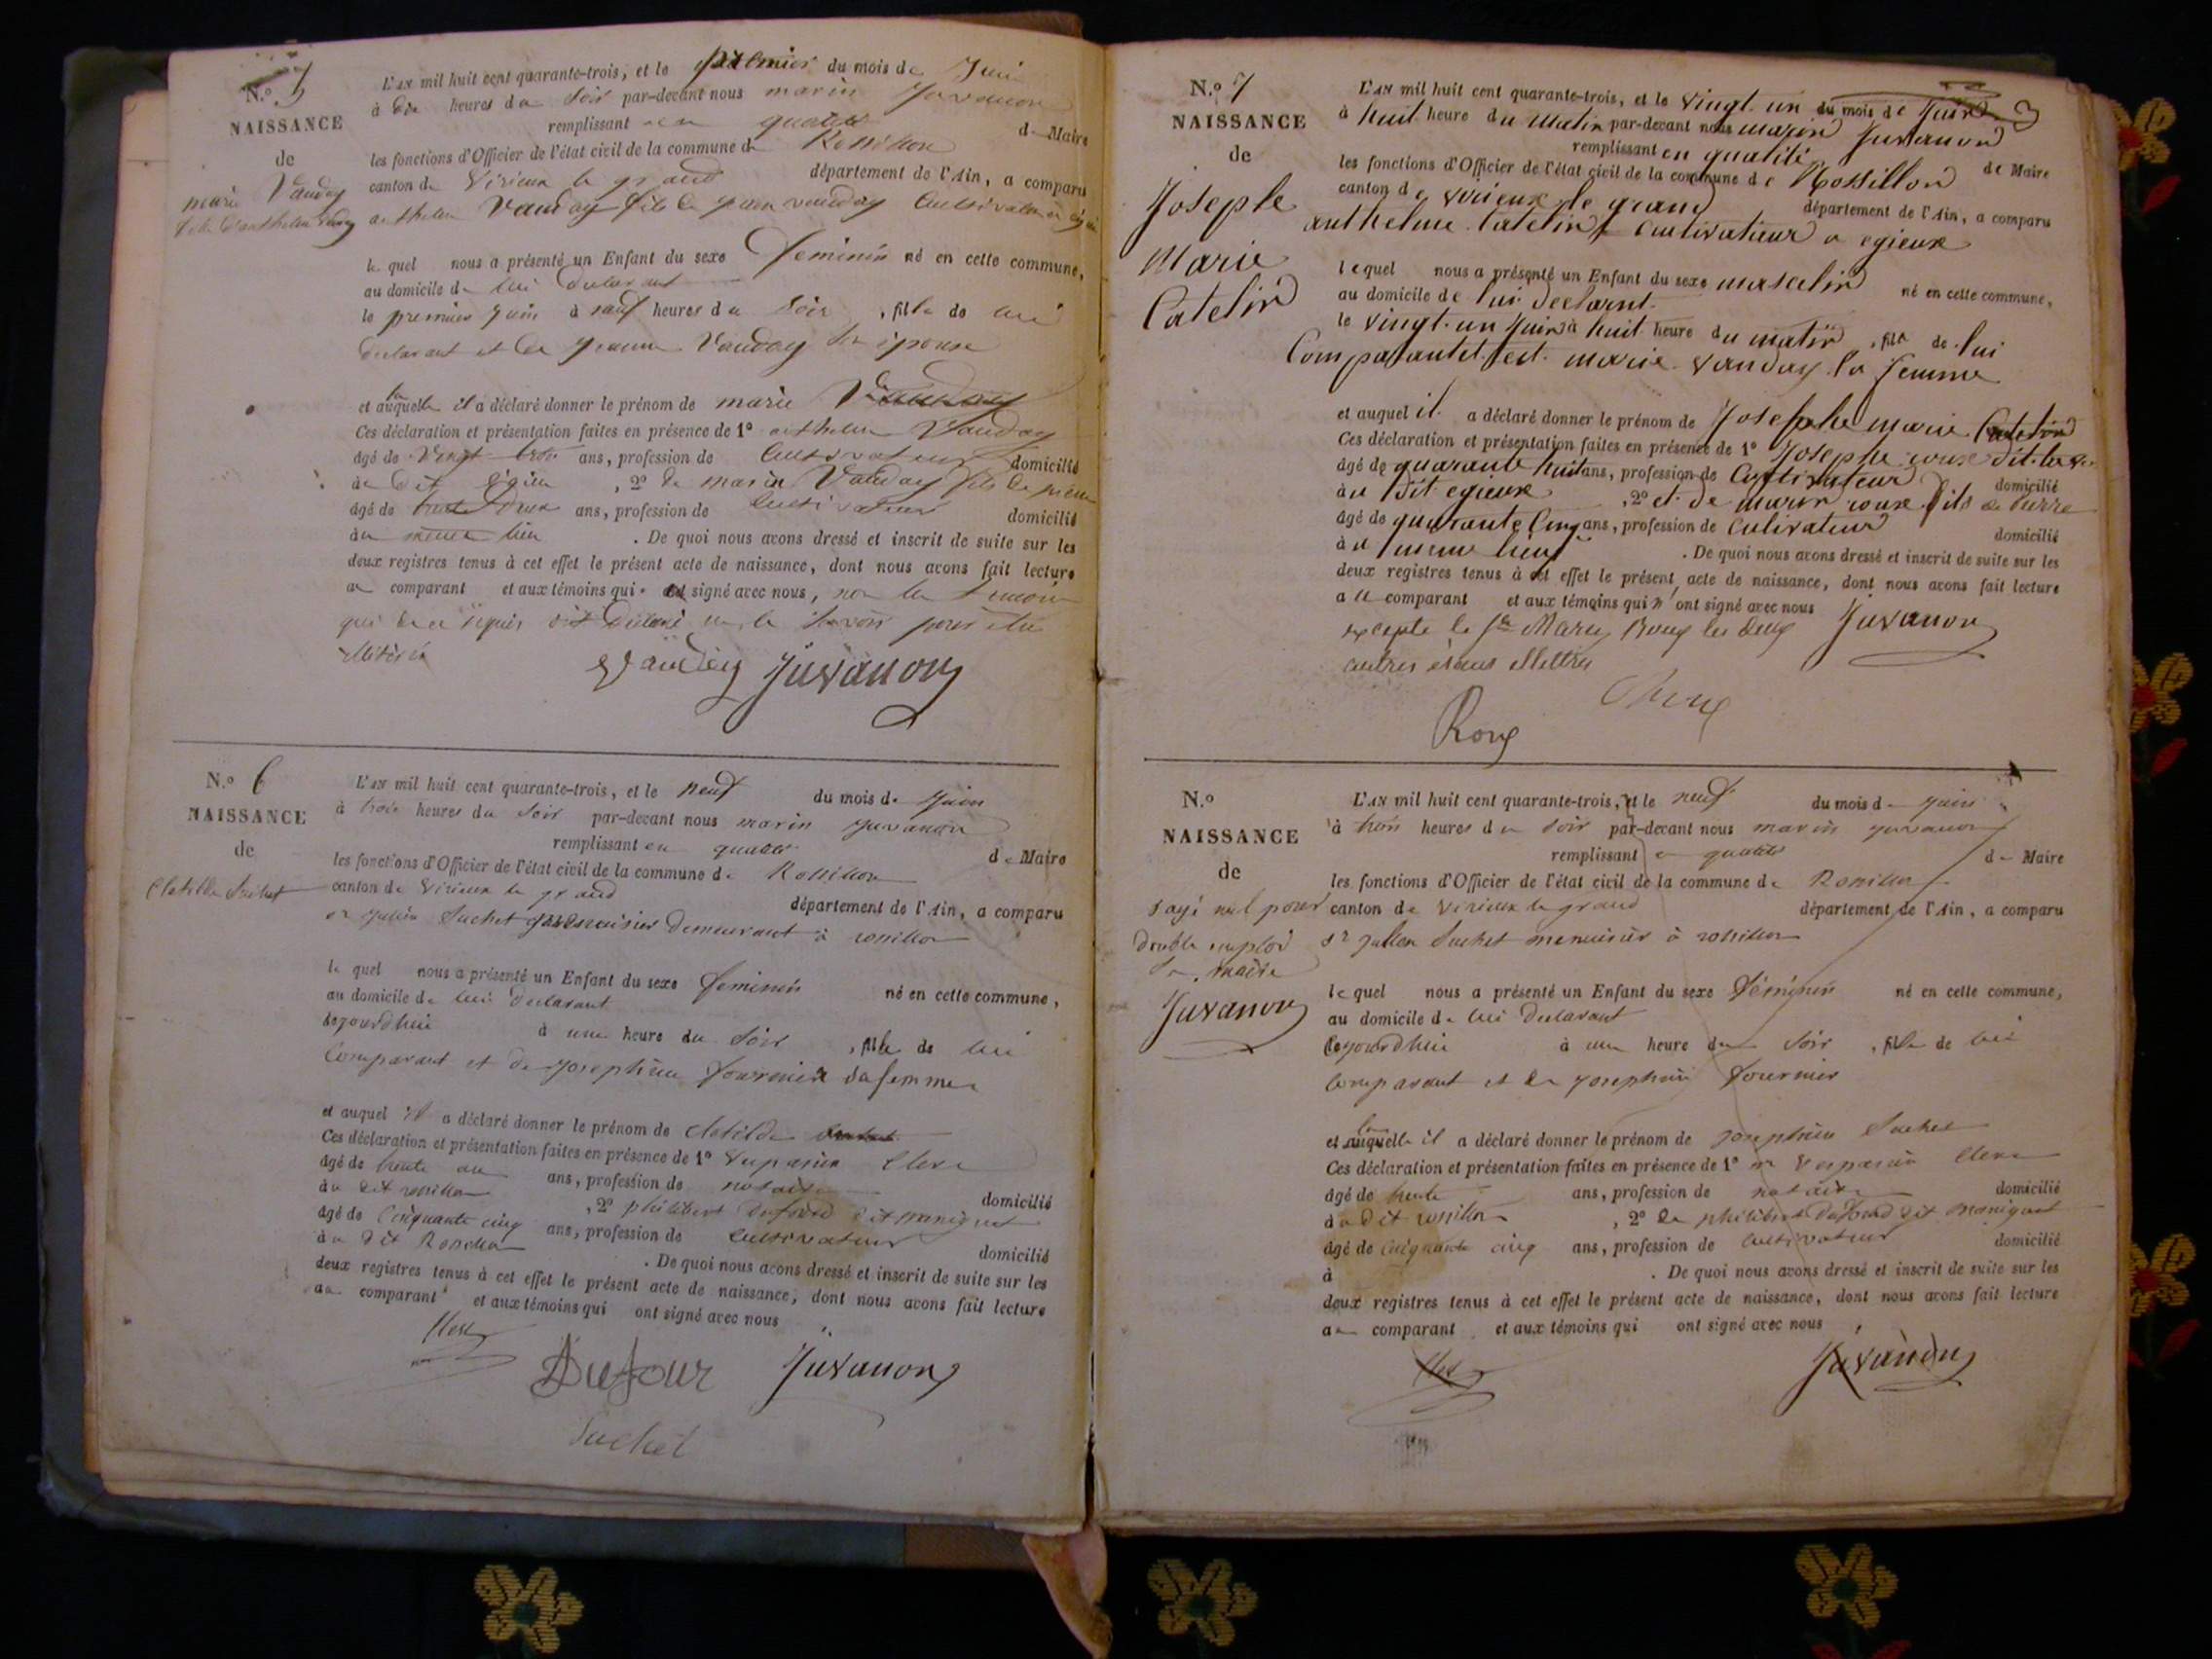 N.o 5
NAISSANCE
de
marie Vauday
L'AN mil huit cent quarante-trois, et le premier du mois de Juin
à dix heures du soir par-devant nous marin Juvanon
remplissant en qualité de Maire
les fonctions d'Officier de l'état civil de la commune de Rossillon
canton de Virieux le grand département de l'Ain, a comparu
anthelme Vauday fils de vauday Cultivateur à
le quel nous a présenté un Enfant du sexe feminin né en cette commune,
au domicile de lui declarant
le premier juin à neuf heures du soir, fille de lui
declarant et de jeanne Vauday son épouse
et auquelle il a déclaré donner le prénom de marie
Ces déclaration et présentation faites en présence de 1o anthelme Vauday
âgé de Vingt ans, profession de Cultivateur domicilié
du dit égieu, 2o de marin Vauday fils de
âgé de trente deux ans, profession de Cultivateur domicilié
au même lieu. De quoi nous avons dressé et inscrit de suite sur les
deux registres tenus à cet effet le présent acte de naissance, dont nous avons fait lecture
au comparant et aux témoins qui signé avec nous, non le
qui de ce requis ont déclaré ne le savoir pour être
illitéré
Vauday Juvanon
N.o 6
NAISSANCE
de
Clotilde Suchet
L'AN mil huit cent quarante-trois, et le neuf du mois de juin
à trois heures du soir par-devant nous marin juvanon
remplissant en qualité de Maire
les fonctions d'Officier de l'état civil de la commune de Rossillon
canton de Virieux le grand département de l'Ain, a comparu
sr julien Suchet menuisier demeurant à rossillon
le quel nous a présenté un Enfant du sexe feminin né en cette commune,
au domicile de lui declarant
cejourdhui à une heure du soir, fille de lui
Comparant et de josephine fournier sa femme
et auquel il a déclaré donner le prénom de clotilde
Ces déclaration et présentation faites en présence de 1o Vespasien Clerc
âgé de trente ans, profession de notaire domicilié
du dit rossillon, 2o philibert dufour dit maniquet
âgé de Cinquante cinq ans, profession de Cultivateur domicilié
au dit Rossillon. De quoi nous avons dressé et inscrit de suite sur les
deux registres tenus à cet effet le présent acte de naissance, dont nous avons fait lecture
au comparant et aux témoins qui ont signé avec nous
Clerc Dufour Juvanon
Suchet
N.o 7
NAISSANCE
de
Josephe
Marie
Catelin
L'AN mil huit cent quarante-trois, et le vingt-un du mois de Juin
à huit heure du matin par-devant nous marin Juvanon
remplissant en qualité de Maire
les fonctions d'Officier de l'état civil de la commune de Rossillon
canton de virieux le grand département de l'Ain, a comparu
anthelme Catelin Cultivateur a egieux
lequel nous a présenté un Enfant du sexe masculin né en cette commune,
au domicile de lui declarnt
le vingt-un Juin à huit heure du matin, fils de lui
Comparant et marie vauday la femme
et auquel il a déclaré donner le prénom de Josephe marie Catelin
Ces déclaration et présentation faites en présence de 1o Josephe roux dit
âgé de quarante huit ans, profession de Cultivateur domicilié
au dit egieux, 2o et de marin roux fils de Pierre
âgé de quarante Cinq ans, profession de Cultivateur domicilié
au meme lieux. De quoi nous avons dressé et inscrit de suite sur les
deux registres tenus à cet effet le présent acte de naissance, dont nous avons fait lecture
au comparant et aux témoins qui n'ont signé avec nous Juvanon
excepte le Roux les deux
autres
Roux
N.o
NAISSANCE
de
rayé nul pour
double employ
Le maire
Juvanon
L'AN mil huit cent quarante-trois, et le neuf du mois de juin
à trois heures du soir par-devant nous marin juvanon
remplissant en qualité de Maire
les fonctions d'Officier de l'état civil de la commune de Rossillon
canton de Virieux le grand département de l'Ain, a comparu
sr julien Suchet menuisier à rossillon
le quel nous a présenté un Enfant du sexe féminin né en cette commune,
au domicile de lui declarant
Cejourdhui à une heure du soir, fille de lui
comparant et de josephine fournier
et auquelle il a déclaré donner le prénom de josephine Suchet
Ces déclaration et présentation faites en présence de 1o mr Vespasien Clerc
âgé de trente ans, profession de notaire domicilié
du dit rossillon, 2o de philibert dufour dit maniquet
âgé de Cinquante cinq ans, profession de Cultivateur domicilié
à . De quoi nous avons dressé et inscrit de suite sur les
deux registres tenus à cet effet le présent acte de naissance, dont nous avons fait lecture
au comparant et aux témoins qui ont signé avec nous
Clerc Juvanon